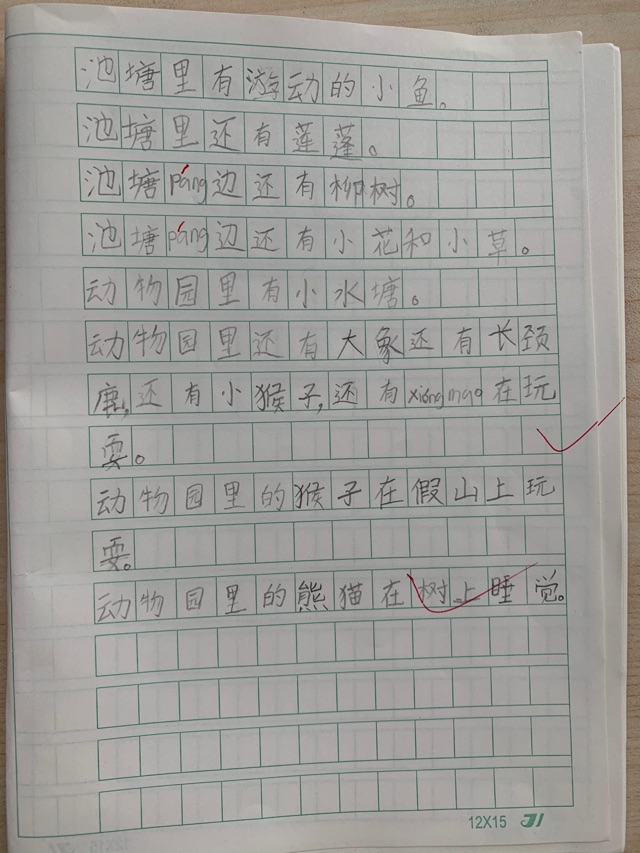 池塘里有游动的小鱼。
池塘里还有莲蓬。
池塘páng边还有柳树。
池塘páng边还有小花和小草。
动物园里有小水塘。
动物园里还有大象还有长颈
鹿,还有小猴子,还有xióngmāo在玩
耍。
动物园里的猴子在假山上玩
耍。
动物园里的熊猫在树上睡觉。
12X15